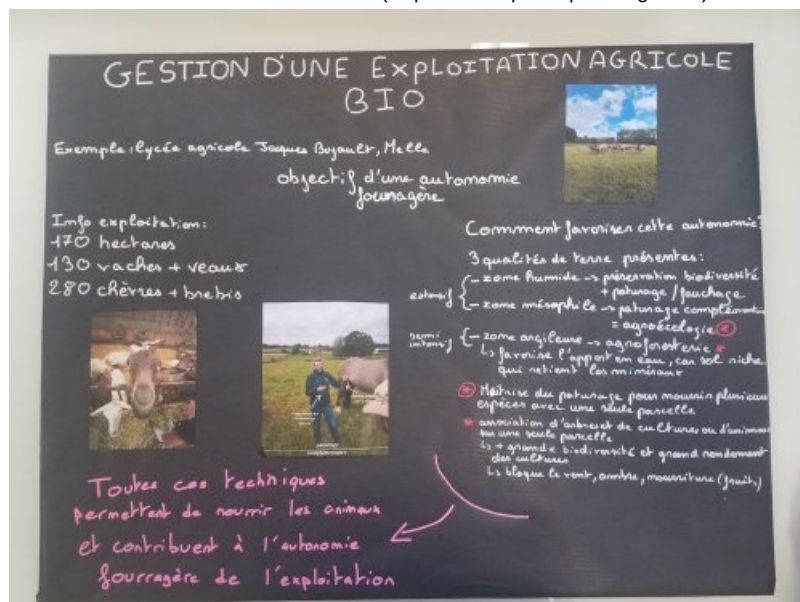 GESTION D'UNE EXPLOITATION AGRICOLE
BIO
Exemple : lycée agricole Jacques Bujault, Melle
objectif d'une autonomie
fourragère
Info exploitation:
170 hectares
130 vaches + veaux
280 chèvres + brebis
Comment favoriser cette autonomie?
3 qualités de terre présentes:
extensif { - zone humide -> préservation biodiversité
+ paturage / fauchage
- zone mésophile -> paturage complémentaire
= agroécologie
semi intensif { - zone argileuse -> agroforesterie *
↳ favorise l'apport en eau, car sol riche
qui retient les minéraux
Maîtrise du paturage pour nourrir plusieurs
espèces avec une seule parcelle
* association d'arbres et de cultures ou d'animaux
sur une seule parcelle
↳ + grande biodiversité et grand rendement
des cultures
↳ bloque le vent, ombre, nourriture (fruits)
Toutes ces techniques
permettent de nourrir les animaux
et contribuent à l'autonomie
fourragère de l'exploitation